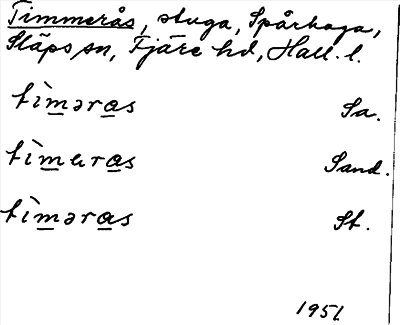 Timmerås, stuga, Spårhaga,
Släps sn, Fjäre hd, Hall. l.
tìməras Sa.
tìmɐras Sand.
tìməras St.
1951.